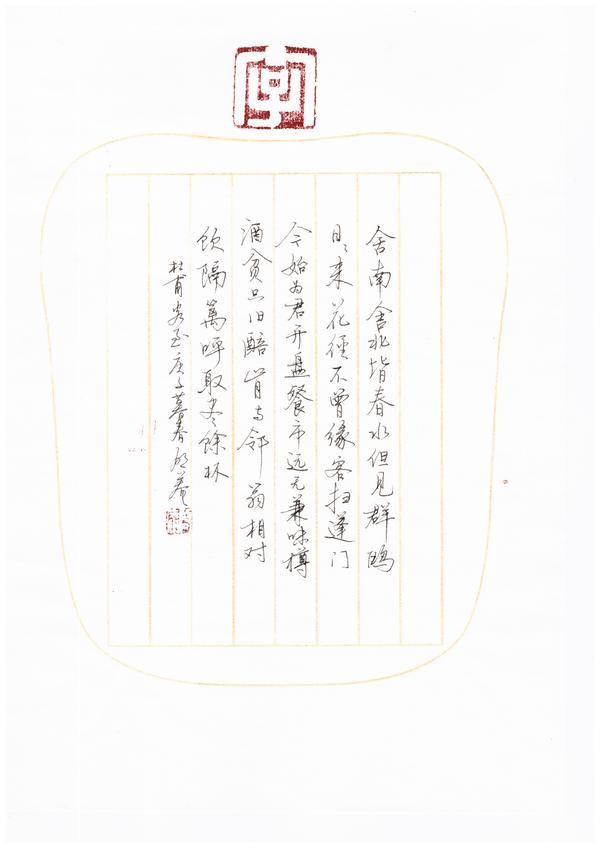 舍南舍北皆春水但见群鸥
日日来花徑不曾缘客扫蓬门
今始为君开盘餐市远无兼味樽
酒贫只旧醅肯与邻翁相对
饮隔篱呼取尽馀杯
杜甫客至庚子暮春